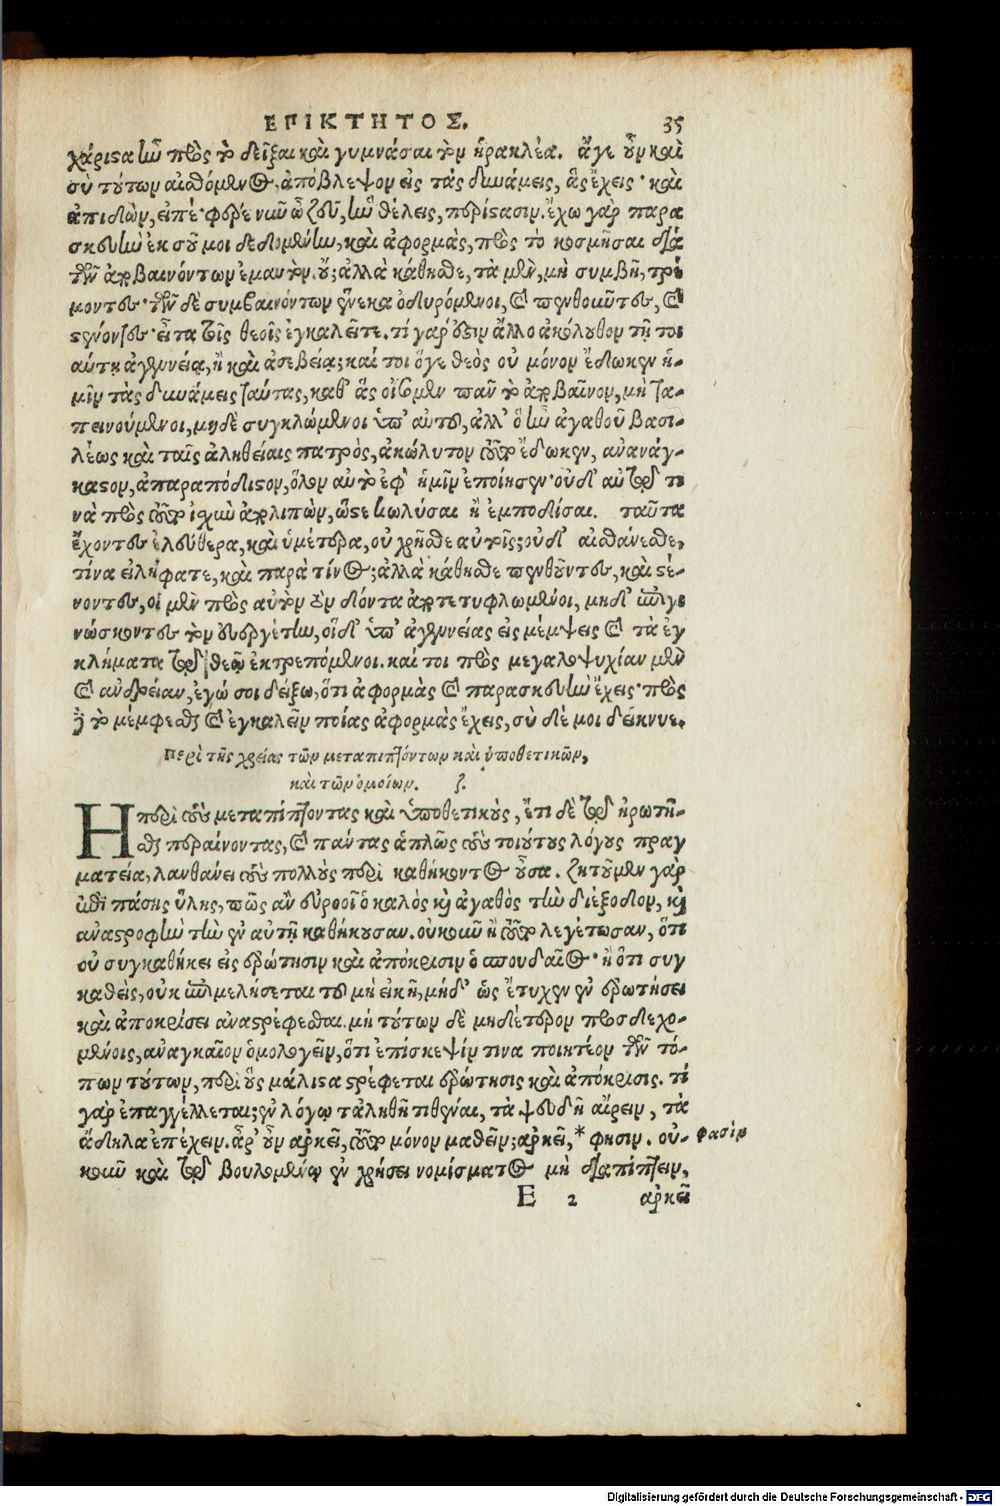 ΕΠΙΚΤΗΤΟΣ. 35
χάριϛα ἦν πρὸς τὸ δεῖξαι καὶ γυμνάσαι τὸν ἡρακλέα. ἄγε οὖν καὶ
σὺ τούτων αἰσθόμενος, ἀπόβλεψον εἰς τὰς δυνάμεις, ἃς ἔχεις· καὶ
ἀπιδὼν, εἰπέ· φέρε νῦν ὦ ζεῦ, ἣν θέλεις, περίϛασιν. ἔχω γὰρ παρα
σκευὴν ἐκ σοῦ μοι δεδομένην, καὶ ἀφορμὰς, πρὸς τὸ κοσμῆσαι διὰ
τῶν ἀποβαινόντων ἐμαυτὸν. οὔ; ἀλλὰ κάθησθε, τὰ μὲν, μὴ συμβῇ, τρέ
μοντες· τῶν δὲ συμβαινόντων ἕνεκα ὀδυρόμενοι, καὶ πενθοῦντες, καὶ
ϛένοντες· εἶτα τοῖς θεοῖς ἐγκαλεῖτε. τί γάρ ἐϛιν ἄλλο ἀκόλουθον τῇ τοι
αύτῃ ἀγεννείᾳ, ἢ καὶ ἀσεβείᾳ; καί τοι ὅγε θεὸς οὐ μόνον ἔδωκεν ἡ-
μῖν τὰς δυνάμεις ταύτας, καθ' ἃς οἴσομεν παν τὸ ἀποβαῖνον, μὴ τα-
πεινούμενοι, μηδὲ συγκλώμενοι ὑπ' αὐτοῦ, ἀλλ' ὃ ἦν ἀγαθοῦ βασι-
λέως καὶ ταῖς ἀληθείαις πατρὸς, ἀκώλυτον τοῦτο ἔδωκεν, ἀνανάγ-
καϛον, ἀπαραπόδιϛον, ὅλον αὐτὸ ἐφ' ἡμῖν ἐποίησεν· οὐδ' αὑτῷ τι
νὰ πρὸς τοῦτο ἰσχὺν ἀπολιπὼν, ὥϛε κωλῦσαι ἢ ἐμποδίσαι. ταῦτα
ἔχοντες ἐλεύθερα, καὶ ὑμέτερα, οὐ χρῆσθε αὐτοῖς; οὐδ' αἰσθάνεσθε,
τίνα εἰλήφατε, καὶ παρὰ τίνος; ἀλλὰ κάθησθε πενθοῦντες, καὶ ϛέ-
νοντες, οἱ μὲν πρὸς αὐτὸν τὸν δόντα ἀποτετυφλωμένοι, μηδ' ἐπιγι
νώσκοντες τὸν εὐεργέτην, οἱ δ' ὑπ' ἀγεννείας εἰς μέμψεις καὶ τὰ ἐγ
κλήματα τῷ θεῷ ἐκτρεπόμενοι. καί τοι πρὸς μεγαλοψυχίαν μὲν
καὶ ἀνδρείαν, ἐγώ σοι δείξω, ὅτι ἀφορμὰς καὶ παρασκευὴν ἔχεις· πρὸς
δὲ τὸ μέμφεσθαι καὶ ἐγκαλεῖν ποίας ἀφορμὰς ἔχεις, σὺ δέ μοι δείκνυε.
Περὶ τῆς χρείας τῶν μεταπιπτόντων καὶ ὑποθετικῶν,
καὶ τῶν ὁμοίων. ζ.
Η περὶ τοὺς μεταπίπτοντας καὶ ὑποθετικοὺς, ἔτι δὲ τῷ ἠρωτῆ-
σθαι περαίνοντας, καὶ πάντας ἁπλῶς τοὺς τοιούτους λόγους πραγ
ματεία, λανθάνει τοὺς πολλοὺς περὶ καθήκοντος οὖσα. ζητοῦμεν γὰρ
ἐπὶ πάσης ὕλης, πῶς ἂν εὕροι ὁ καλὸς καὶ ἀγαθὸς τὴν διέξοδον, καὶ
ἀναϛροφὴν τὴν ἐν αὐτῇ καθήκουσαν. οὐκοῦν ἢ τοῦτο λεγέτωσαν, ὅτι
οὐ συγκαθήκει εἰς ἐρώτησιν καὶ ἀπόκρισιν ὁ σπουδαῖος· ἢ ὅτι συγ
καθεὶς, οὐκ ἐπιμελήσεται τοῦ μὴ εἰκῆ, μήδ' ὡς ἔτυχεν ἐν ἐρωτήσει
καὶ ἀποκρίσει ἀναϛρέφεσθαι. μὴ τούτων δὲ μηδέτερον προσδεχο-
μένοις, ἀναγκαῖον ὁμολογεῖν, ὅτι ἐπίσκεψίν τινα ποιητέον τῶν τό-
πων τούτων, περὶ οὓς μάλιϛα ϛρέφεται ἐρώτησις καὶ ἀπόκρισις. τί
γὰρ ἐπαγγέλλεται; ἐν λόγῳ τἀληθῆ τιθέναι, τὰ ψευδῆ αἴρειν, τὰ
ἄδηλα ἐπέχειν. ἆρ' οὖν ἀρκεῖ, τοῦτο μόνον μαθεῖν; ἀρκεῖ,* φησιν. οὐ- φασὶν
κοῦν καὶ τῷ βουλομένῳ ἐν χρήσει νομίσματος μὴ διαπίπτειν,
E 2 ἀρκεῖ
Digitalisierung gefördert durch die Deutsche Forschungsgemeinschaft - DFG